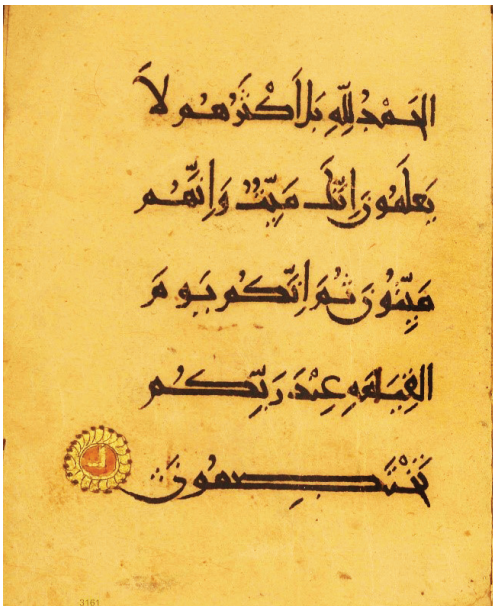 الحَمْدُ لِلّٰهِ بَل اَكْثَرُهُم لاَ
يَعلَمُونَ اِنَّكَ مَيِّتٌ وَاِنَّهُم
مَيِّتُونَ ثُمَ اِنَّكُم يَومَ
القِيَامَهِ عِنْدَ رَبِّكُم
تَخْتَصِمُونَ
3161